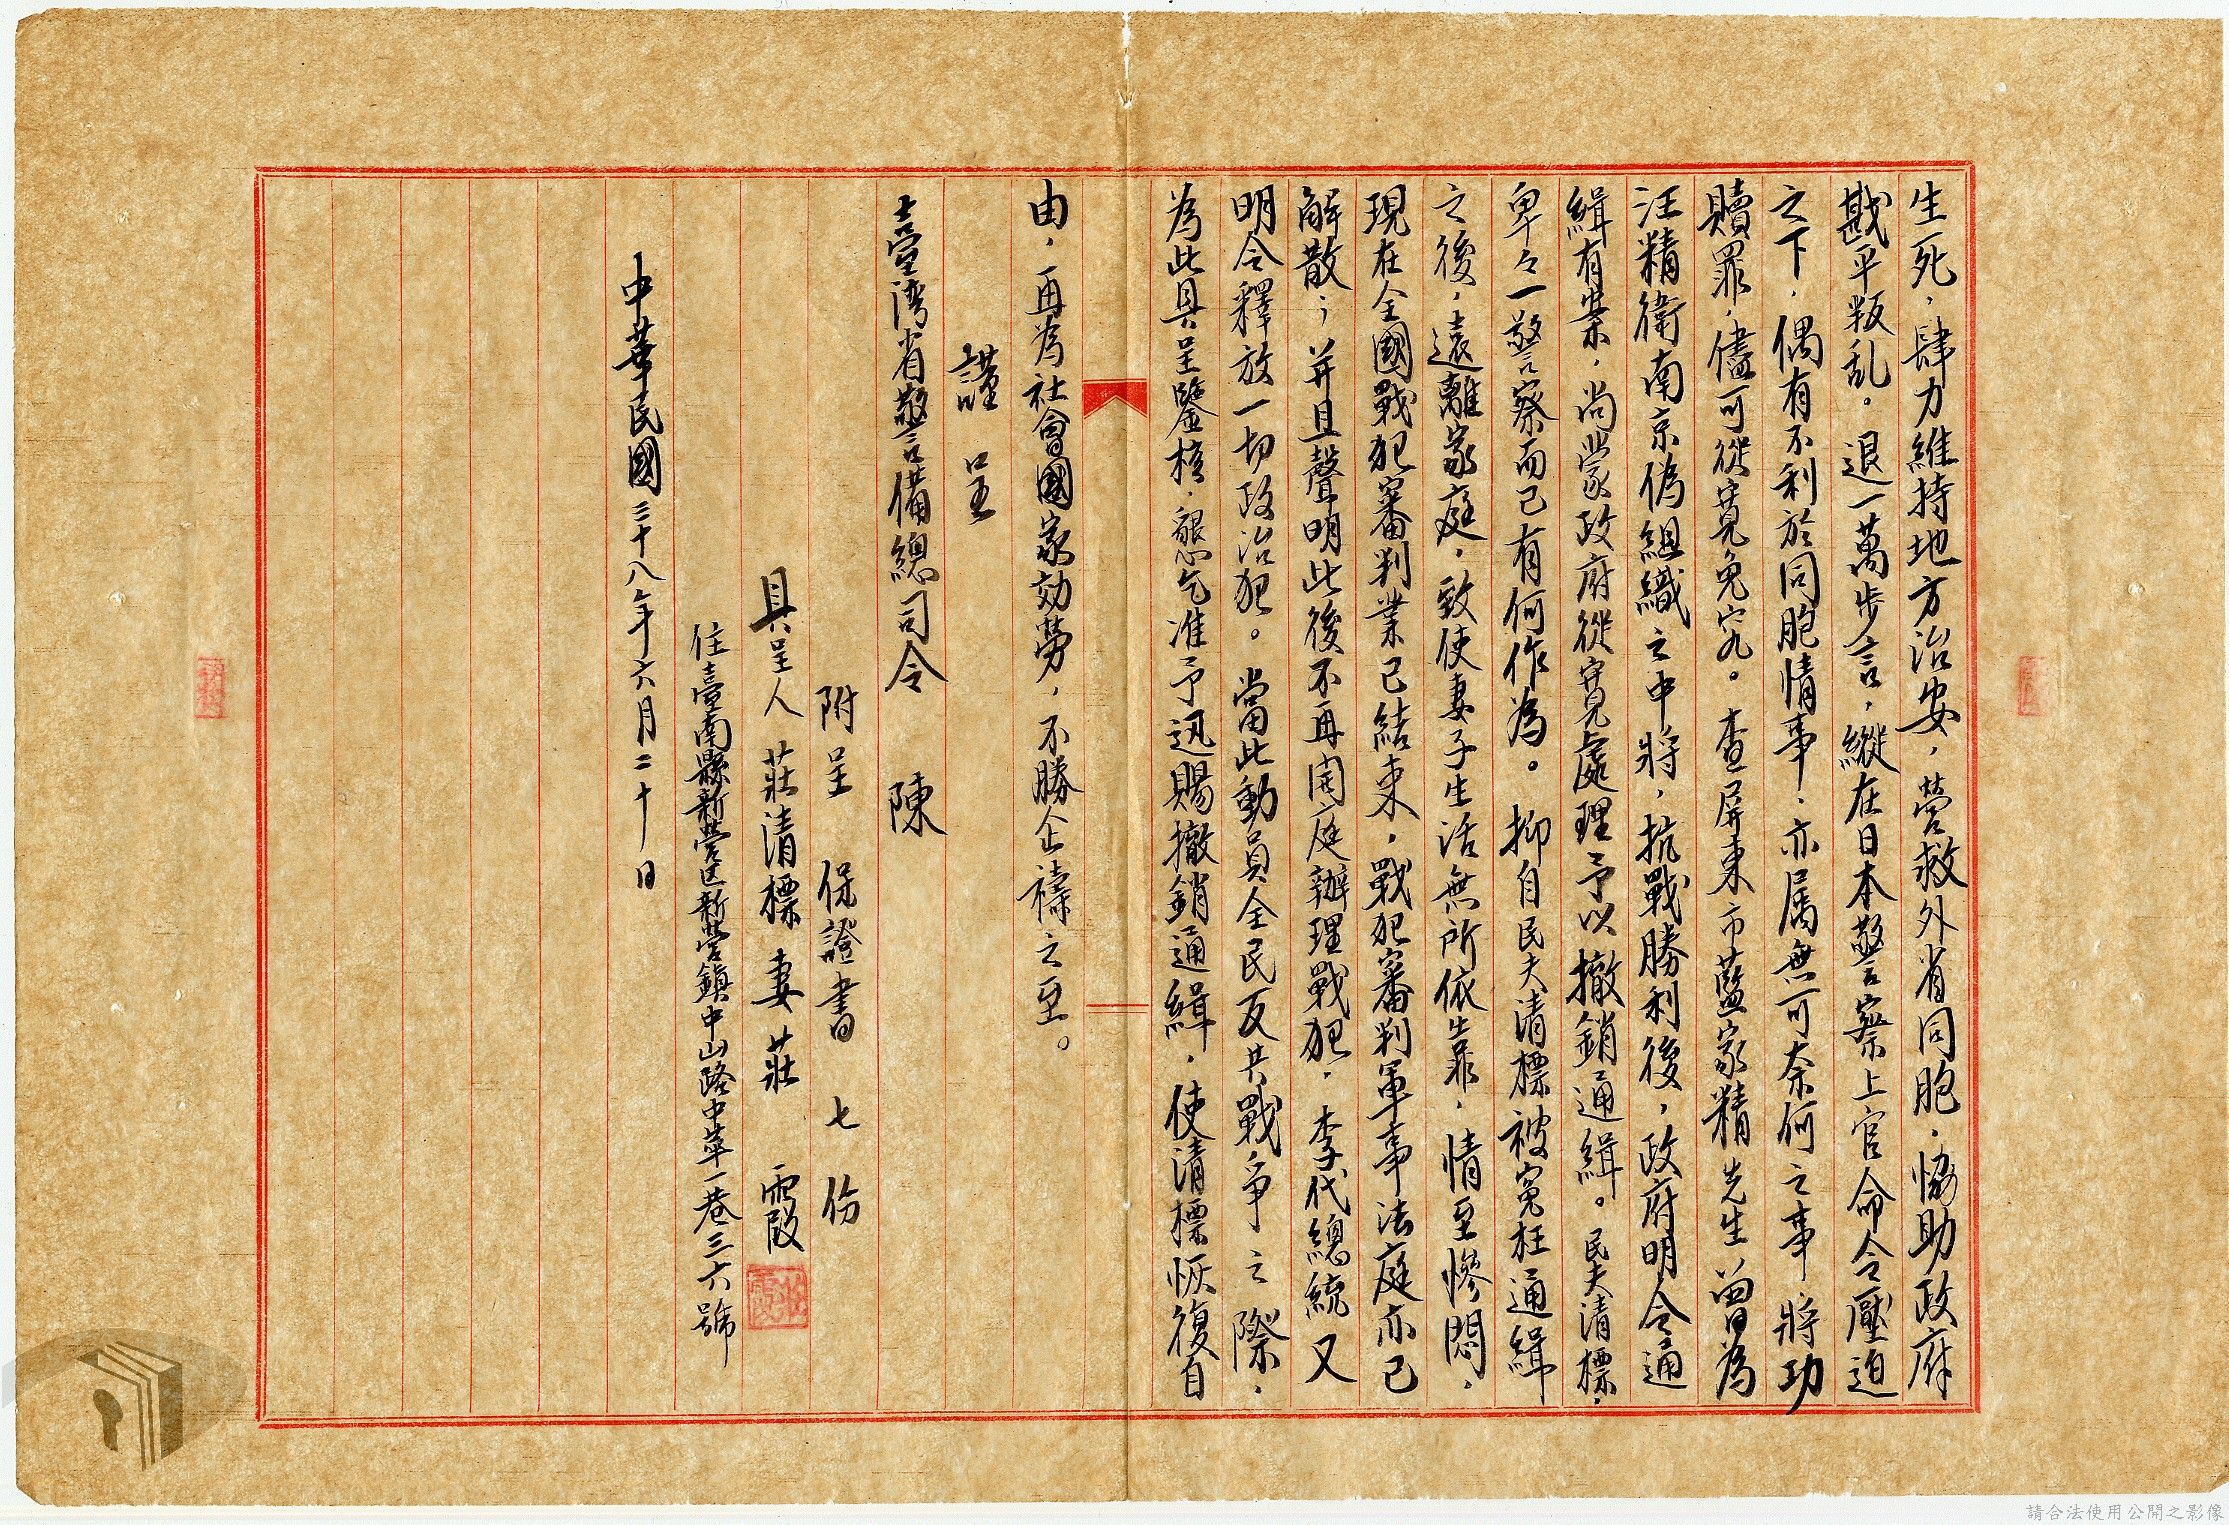 生死，肆力維持地方治安，營救外省同胞，協助政府
戡平叛乱。退一萬步言，縱在日本警察上官命令壓迫
之下，偶有不利於同胞情事，亦属無可奈何之事，將功
贖罪，儘可從寬免究。查屏東市藍家精先生，曾為
汪精衛南京偽組織之中將，抗戰勝利後，政府明令通
緝有案，尚蒙政府從寬處理予以撤銷通緝。民夫清標，
卑々一警察而已有何作為。抑自民夫清標被冤枉通緝
之後，遠離家庭，致使妻子生活無所依靠，情至慘悶，
現在全國戰犯審判業已結束，戰犯審判軍事法庭亦已
解散；并且聲明此後不再開庭辦理戰犯，李代總統又
明令釋放一切政治犯。當此動員全民反共戰爭之際，
為此具呈鑒核，懇乞准予迅賜撤銷通緝，使清標恢復自
由，再為社會國家効勞，不勝企禱之至。
謹呈
臺湾省警備總司令 陳
附呈 保證書 七份
具呈人 莊清標 妻 莊 霞
莊霞
住臺南縣新營区新營鎮中山路中華一巷三六號
中華民國三十八年六月二十日
請合法使用公開之影像